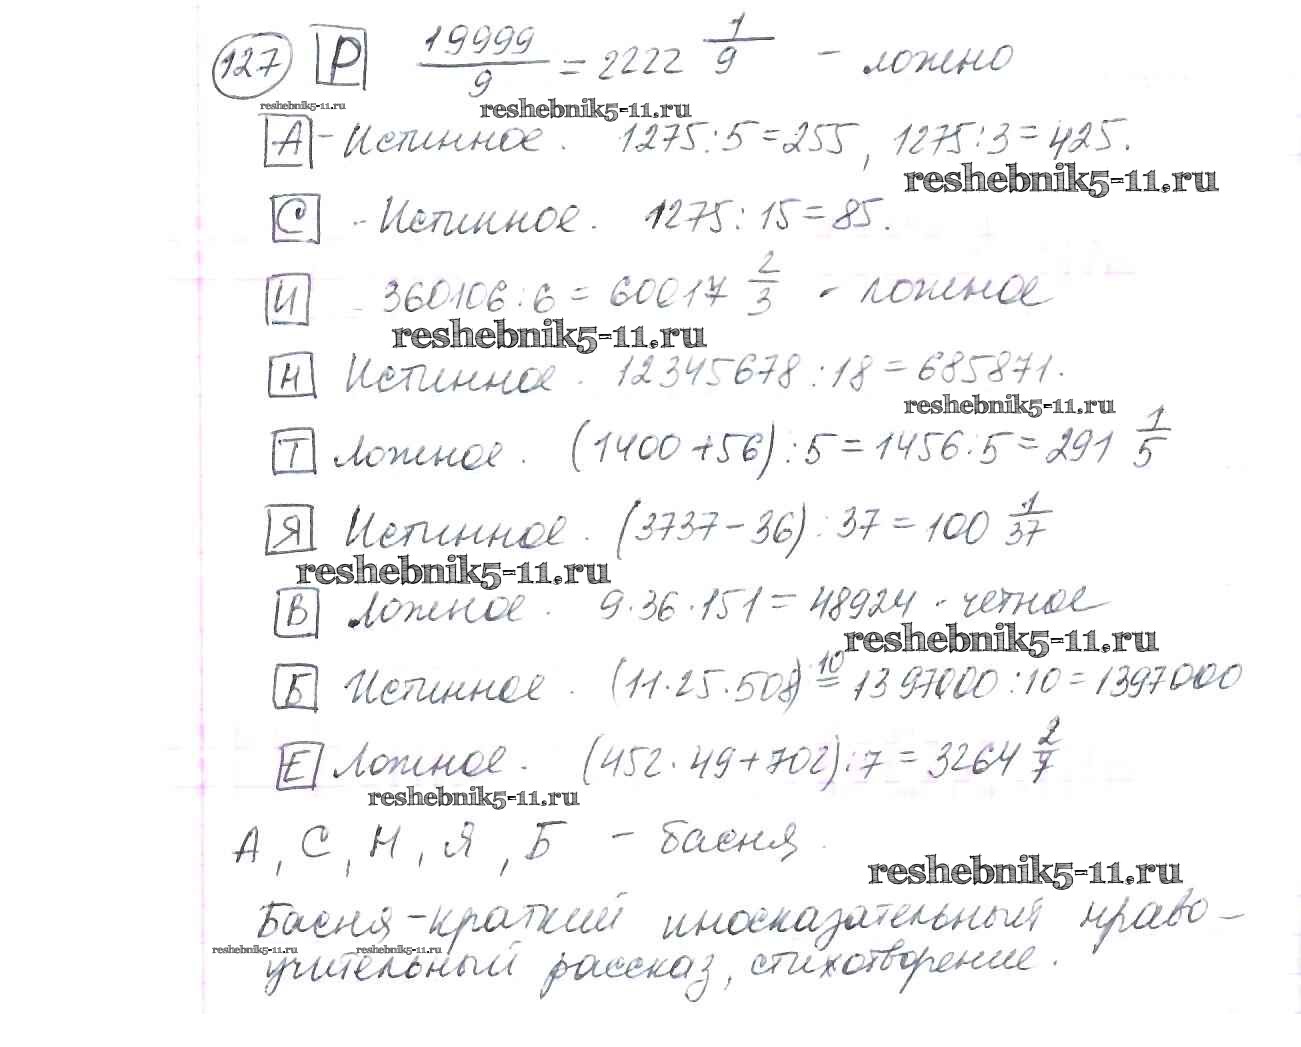 127 Р 19999/9 = 2222 1/9 - ложно
reshebnik5-11.ru reshebnik5-11.ru
А - Истинное. 1275:5=255, 1275:3=425.
reshebnik5-11.ru
С - Истинное. 1275:15=85.
И 360106:6=60017 2/3 - ложное
reshebnik5-11.ru
Н Истинное. 12345678:18=685871.
reshebnik5-11.ru
Т Ложное. (1400+56):5=1456:5=291 1/5
Я Истинное. (3737-36):37=100 1/37
reshebnik5-11.ru
В Ложное. 9·36·151=48924 - четное
reshebnik5-11.ru
Б Истинное. (11·25·508) 10 = 1397000:10=1397000
Е Ложное. (452·49+702):7=3264 2/7
reshebnik5-11.ru
А, С, Н, Я, Б - басня.
reshebnik5-11.ru
Басня - краткий иносказательный нраво-
reshebnik5-11.ru reshebnik5-11.ru
учительный рассказ, стихотворение.